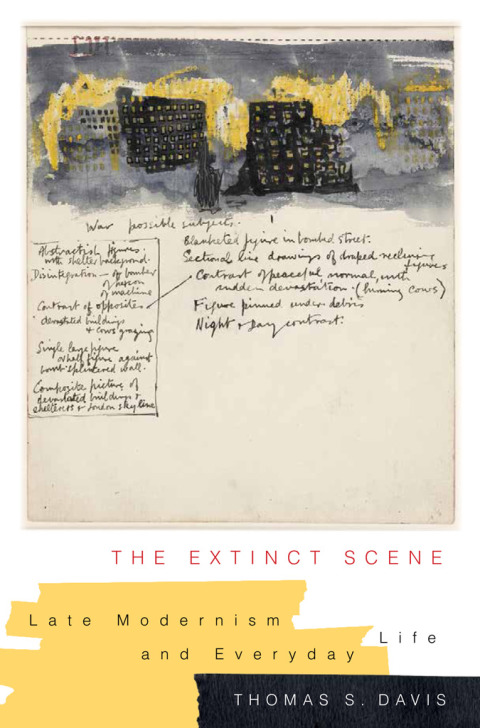 War possible subjects.
Abstractish figures.
with shelter background.
Disintegration — of bomber
of person
of machine
Contrast of opposites
devastated buildings
& cows grazing
Single large figure
or half figure against
bomb splintered wall.
Composite picture of
devastated buildings &
shelterers & London skyline
Blanketed figure in bombed street.
Sectional line drawings of draped reclining
figures
Contrast of peaceful normal, with
sudden devastation. (burning cows)
Figure pinned under debris
Night & Day contrast.
THE EXTINCT SCENE
Late Modernism
and Everyday Life
THOMAS S. DAVIS